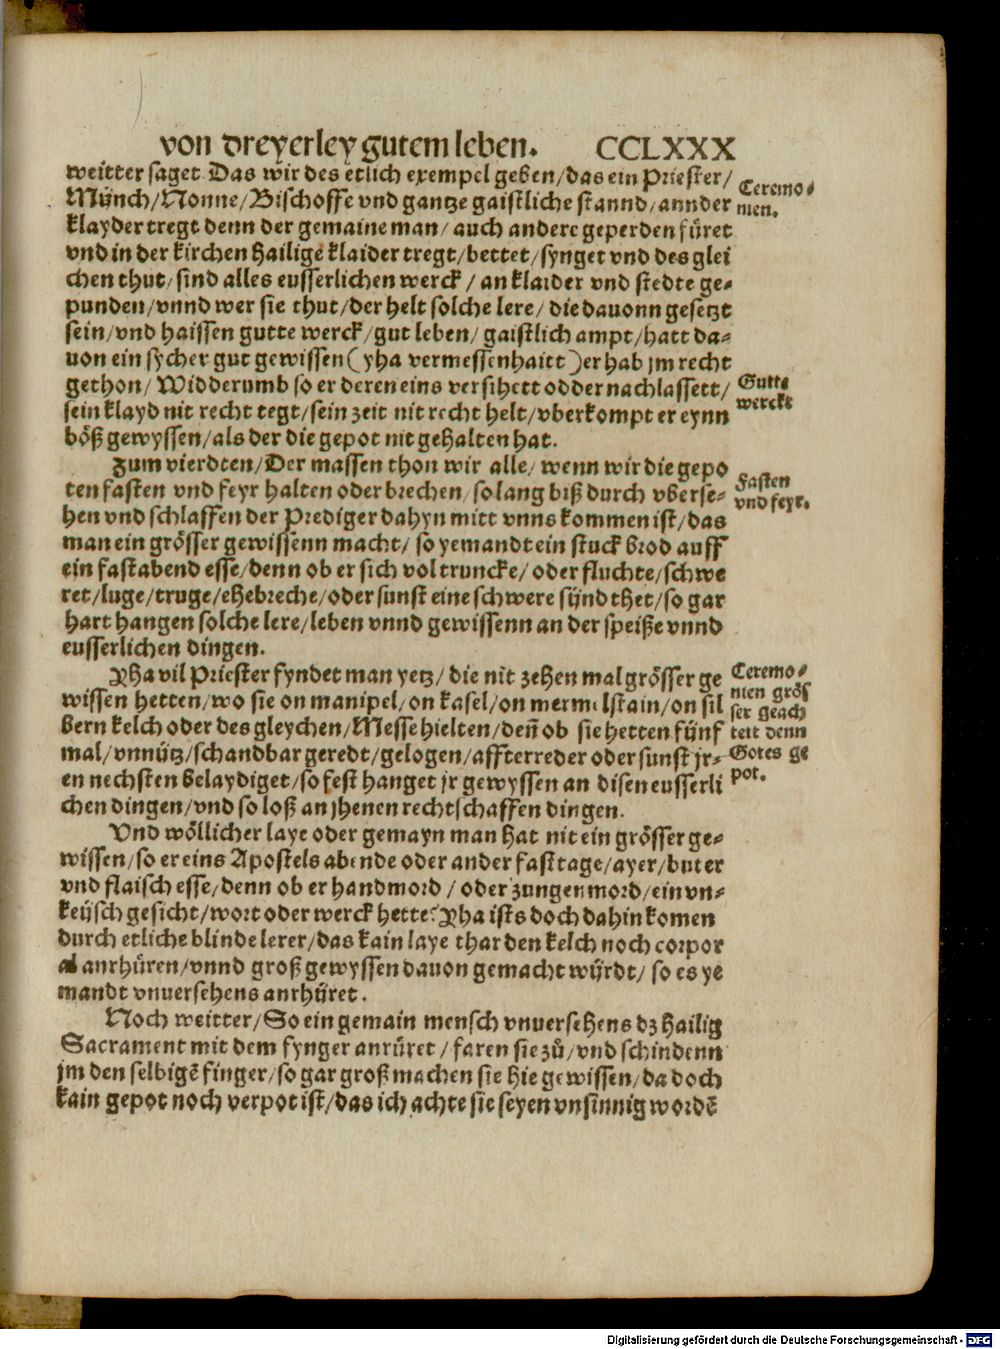 von dreyerley gutem leben. CCLXXX
weitter saget. Das wir des etlich exempel geben/das ein Priester/
Münch/Nonne/Bischoffe vnd gantze gaistliche stannd/annder
klayder tregt denn der gemaine man/auch andere geperden füret
vnd in der kirchen hailigē klaider tregt/bettet/synget vnd des glei
chen thut/sind alles eusserlichen werck/an klaider vnd stedte ge-
punden/vnnd wer sie thut/der helt solche lere/die dauonn gesetzt
sein/vnd haissen gutte werck/gut leben/gaistlich ampt/hatt da-
uon ein sycher gut gewissen (yha vermessenhaitt) er hab jm recht
gethon/Widderumb so er deren eins versihett odder nachlassett/
sein klayd nit recht tegt/sein zeit nit recht helt/vberkompt er eynn
böß gewyssen/als der die gepot nit gehalten hat.
Zum vierdten/Der massen thon wir alle/wenn wir die gepo
ten fasten vnd feyr halten oder brechen/so lang biß durch vberse-
hen vnd schlaffen der Prediger dahyn mitt vnns kommen ist/das
man ein grösser gewissenn macht/so yemandt ein stuck brod auff
ein fastabend esse/denn ob er sich vol truncke/oder fluchte/schwe
ret/luge/truge/ehebreche/oder sunst eine schwere sünd thet/so gar
hart hangen solche lere/leben vnnd gewissenn an der speiße vnnd
eusserlichen dingen.
Yha vil Priester fyndet man yetz/die nit zehen mal grösser ge
wissen hetten/wo sie on manipel/on kasel/on mermelstain/on sil
bern kelch oder des gleychen/Messe hielten/deñ ob sie hetten fünf
mal/vnnütz/schandbar geredt/gelogen/affterreder oder sunst jr-
en nechsten belaydiget/so fest hanget jr gewyssen an disen eusserli
chen dingen/vnd so loß an jhenen rechtschaffen dingen.
Vnd wöllicher laye oder gemayn man hat nit ein grösser ge-
wissen/so er eins Apostels abende oder ander fasttage/ayer/buter
vnd flaisch esse/denn ob er handmord/oder zungenmord/ein vn-
keüsch gesicht/wort oder werck hette? Yha ists doch dahin komen
durch etliche blinde lerer/das kain laye thar den kelch noch corpor
al anrhüren/vnnd groß gewyssen dauon gemacht würdt/so es ye
mandt vnuersehens anrhüret.
Noch weitter/So ein gemain mensch vnuersehens dz hailig
Sacrament mit dem fynger anrüret/faren sie zů/vnd schindenn
jm den selbigē finger/so gar groß machen sie hie gewissen/da doch
kain gepot noch verpot ist/das ich achte sie seyen vnsinnig wordē
Ceremo-
nien.
Gutte
werckt
Fasten
vnd feyr.
Ceremo-
nien grös
ser geach
tett denn
Gotes ge
pot.
Digitalisierung gefördert durch die Deutsche Forschungsgemeinschaft - DFG